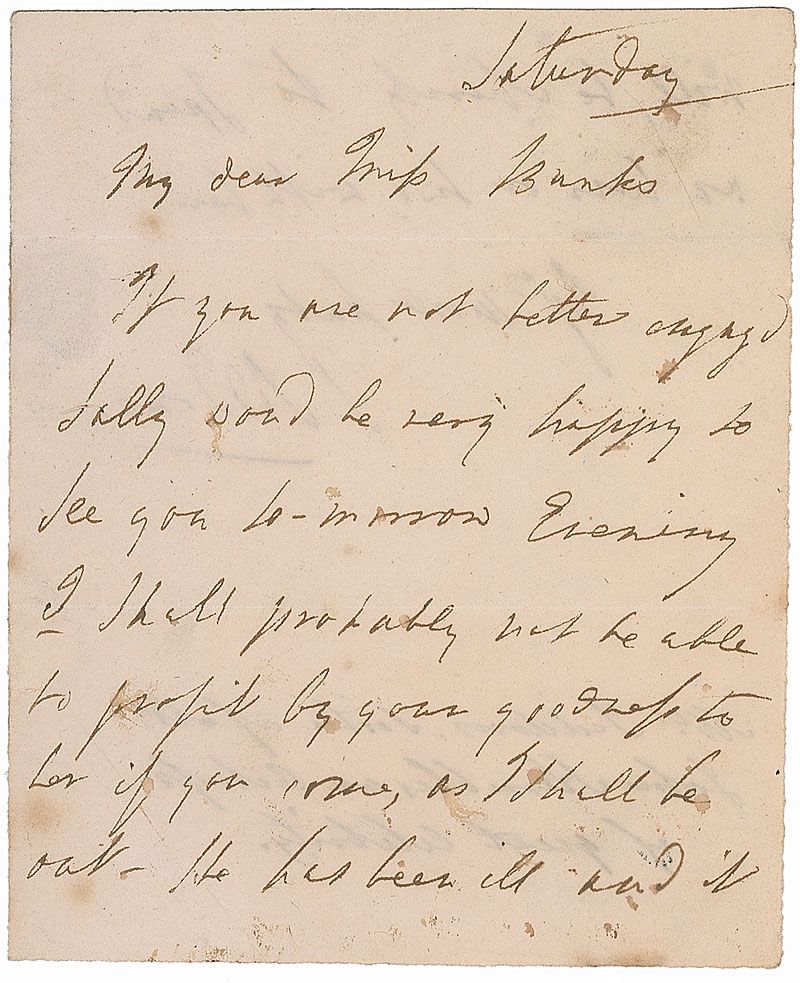 Saturday
My dear Miss Banks
If you are not better engag'd
Sally woud be very happy to
see you to-morrow Evening
I shall probably not be able
to profit by your goodness to
her if you come, as I shall be
out - He has been ill and it